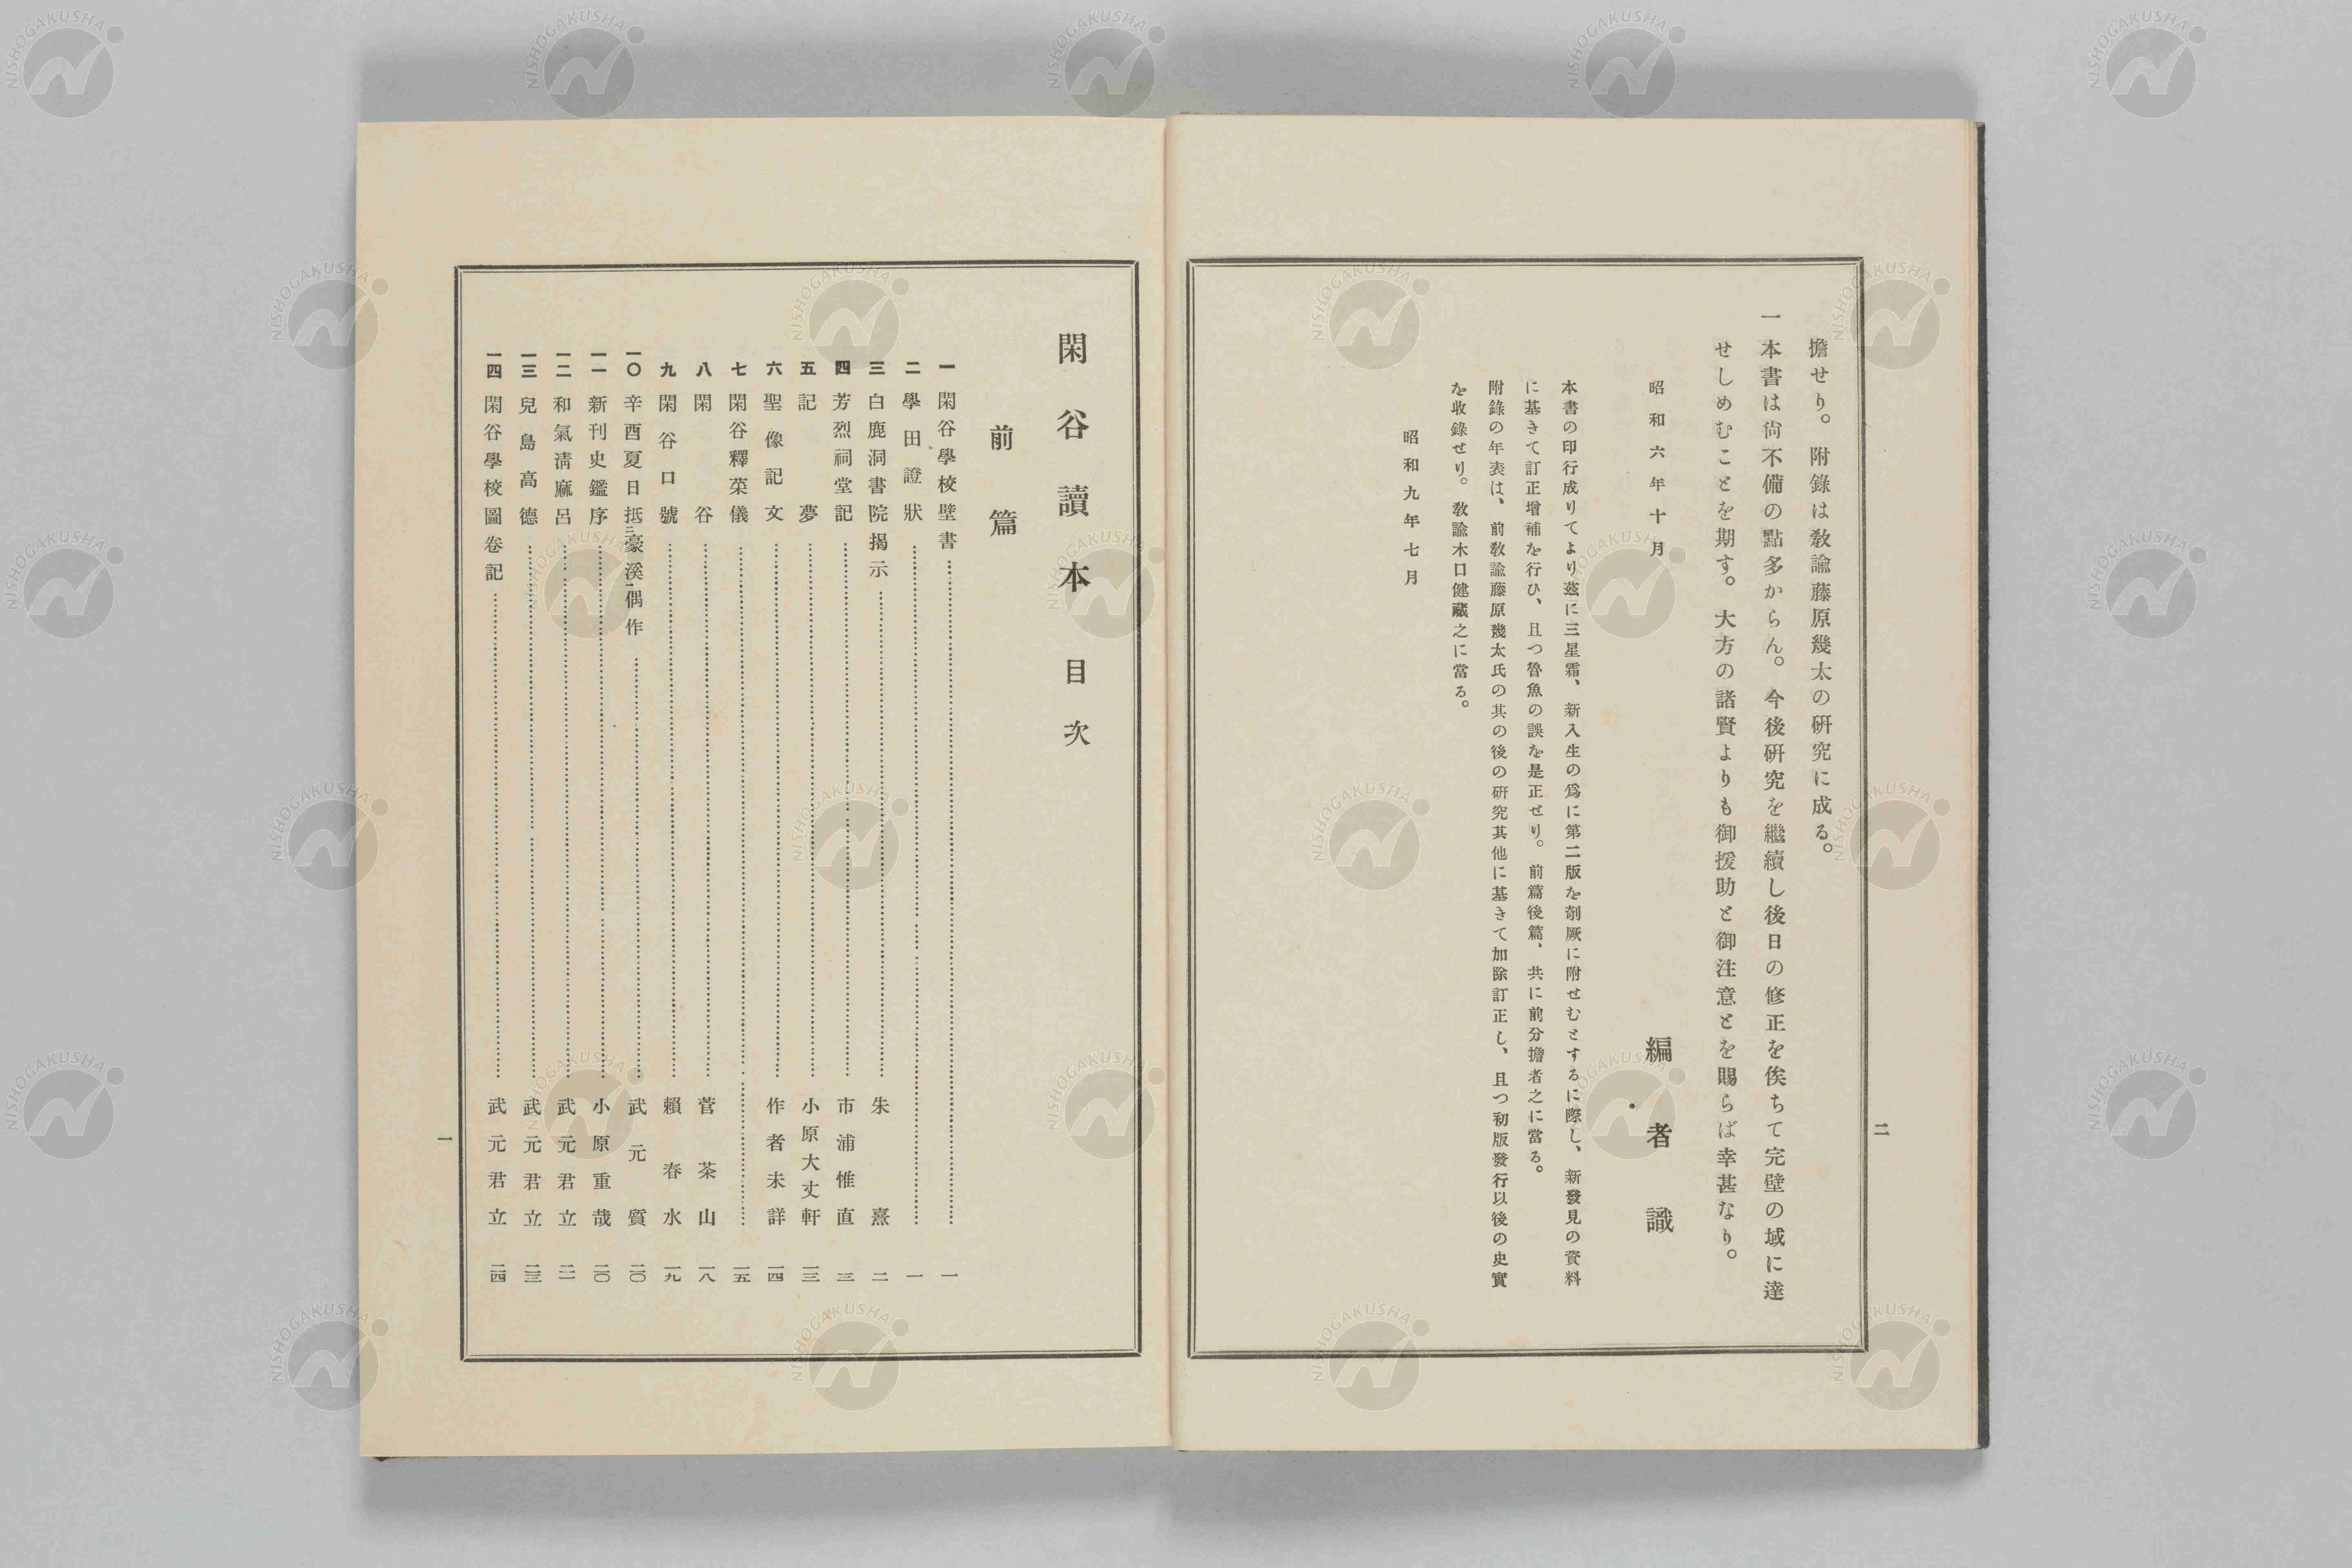 擔せり。附錄は敎諭藤原幾太の硏究に成る。
一本書は尙不備の點多からん。今後硏究を繼續し後日の修正を俟ちて完璧の域に達
せしめむことを期す。大方の諸賢よりも御援助と御注意とを賜らば幸甚なり。
昭和六年十月
編者識
本書の印行成りてより茲に三星霜、新入生の爲に第二版を剞厥に附せむとするに際し、新發見の資料
に基きて訂正增補を行ひ、且つ魯魚の誤を是正せり。前篇後篇、共に前分擔者之に當る。
附錄の年表は、前敎諭藤原幾太氏の其の後の硏究其他に基きて加除訂正し、且つ初版發行以後の史實
を收錄せり。敎諭木口健藏之に當る。
昭和九年七月
二
閑谷讀本目次
前篇
一 閑谷學校壁書 一
二 學田證狀 一
三 白鹿洞書院揭示 朱熹 二
四 芳烈祠堂記 市浦惟直 三
五 記夢 小原大丈軒 一三
六 聖像記文 作者未詳 一四
七 閑谷釋菜儀 一五
八 閑谷 菅茶山 一八
九 閑谷口號 賴春水 一九
一〇 辛酉夏日抵二豪溪一偶作 武元質 二〇
一一 新刊史鑑序 小原重哉 二〇
一二 和氣淸麻呂 武元君立 二二
一三 兒島高德 武元君立 二三
一四 閑谷學校圖卷記 武元君立 二四
一
NISHOGAKUSHA